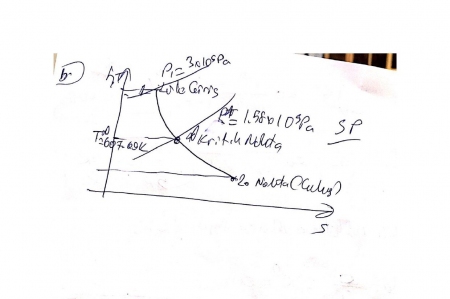 b.
h,T
P₁=3x10⁵Pa
Lüle Giriş
P*=1.58x10⁵Pa
5P
T*=607.09K
Kritik Nokta
2. Nokta (Çıkış)
S